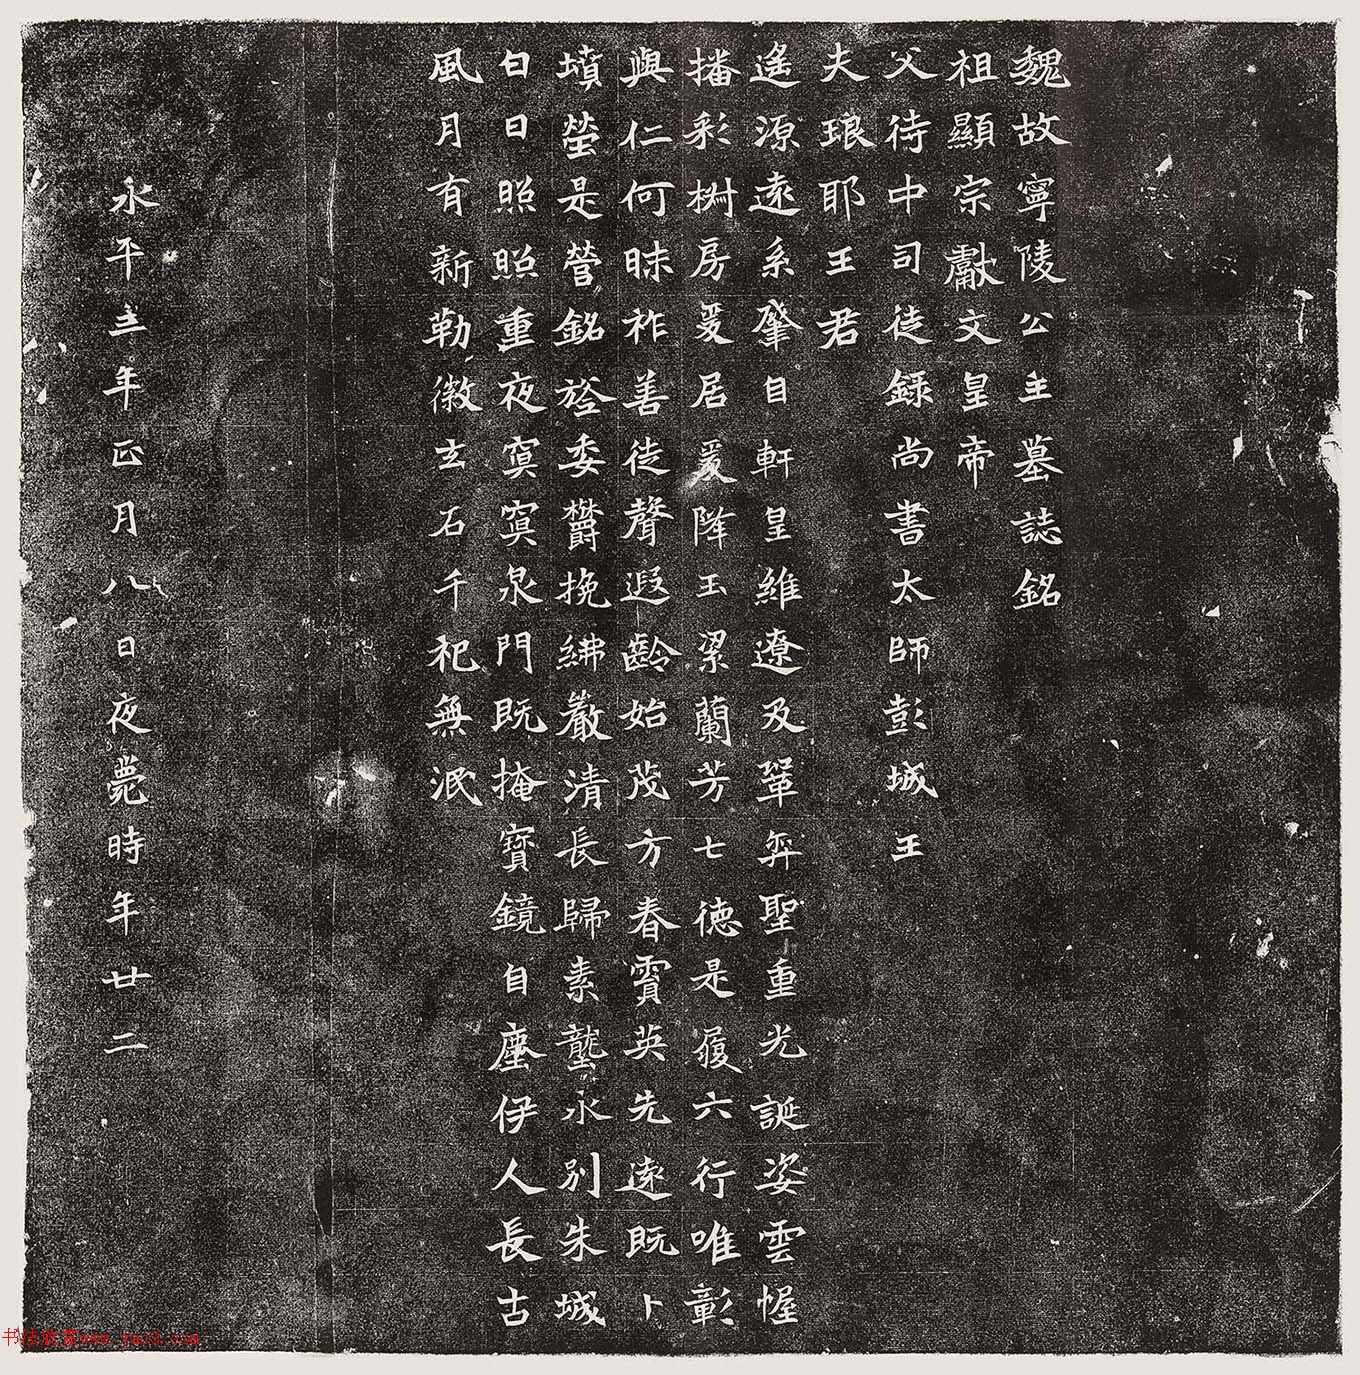 魏故寧陵公主墓誌銘
祖顯宗獻文皇帝
父待中司徒錄尚書太師彭城王
夫琅耶王君
遙源遠系肇自軒皇維遼及鞏弈聖重光誕姿雲幄
播彩椒房爰居爰降玉潔蘭芳七德是履六行唯彰
與仁何昧祚善徒聲遐齡始茂方春賈英先遠既卜
墳塋是營銘旌委欝挽紼嚴清長歸素壟永別朱城
白日照照重夜寞寞泉門既掩寶鏡自塵伊人長古
風月有新勒徽玄石千祀無泯
永平三年正月八日夜薨時年廿二
书法欣赏www.yac8.com